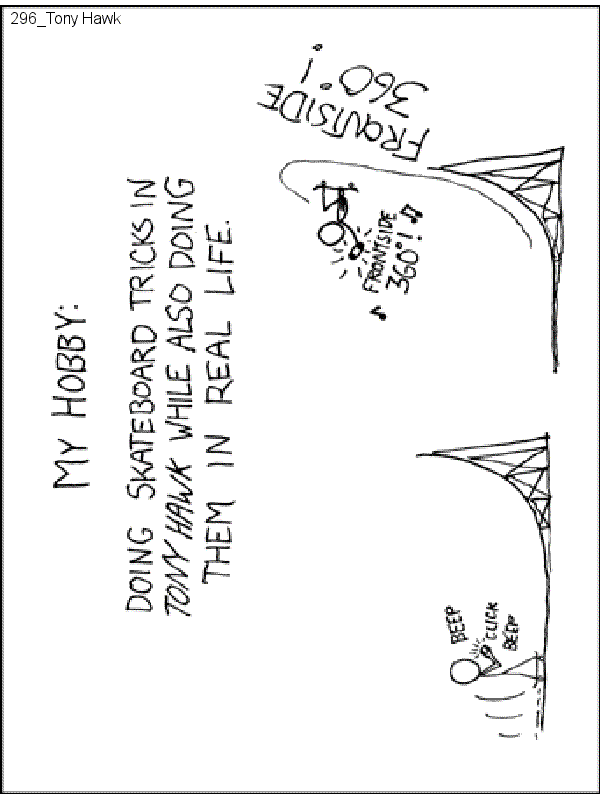 296_Tony Hawk
MY HOBBY:
DOING SKATEBOARD TRICKS IN
TONY HAWK WHILE ALSO DOING
THEM IN REAL LIFE.
BEEP
CLICK
BEEP
FRONTSIDE
360°!
FRONTSIDE
360°!